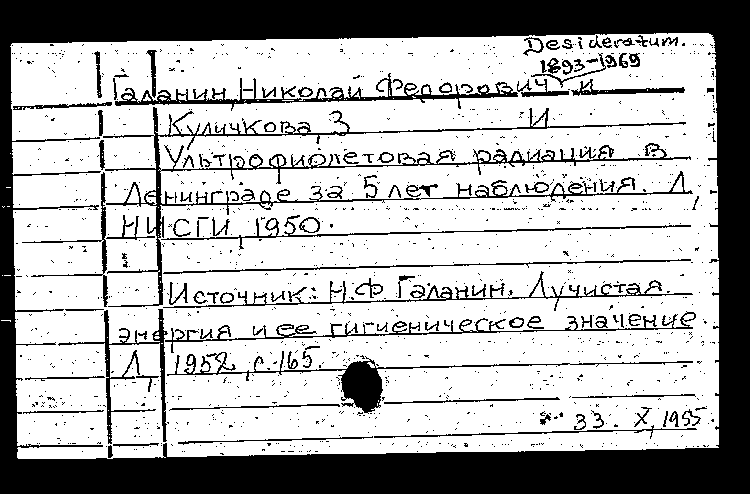 Desideratum.
1893-1969
Галанин, Николай Федорович и
Куличкова, З И
Ультрофиолетовая радиация в
Ленинграде за 5 лет наблюдения. Л,
НИСГИ, 1950.
Источник: Н.Ф Галанин. Лучистая
энергия и ее гигиеническое значение.
Л, 1952, с. 165.
33. X, 1955